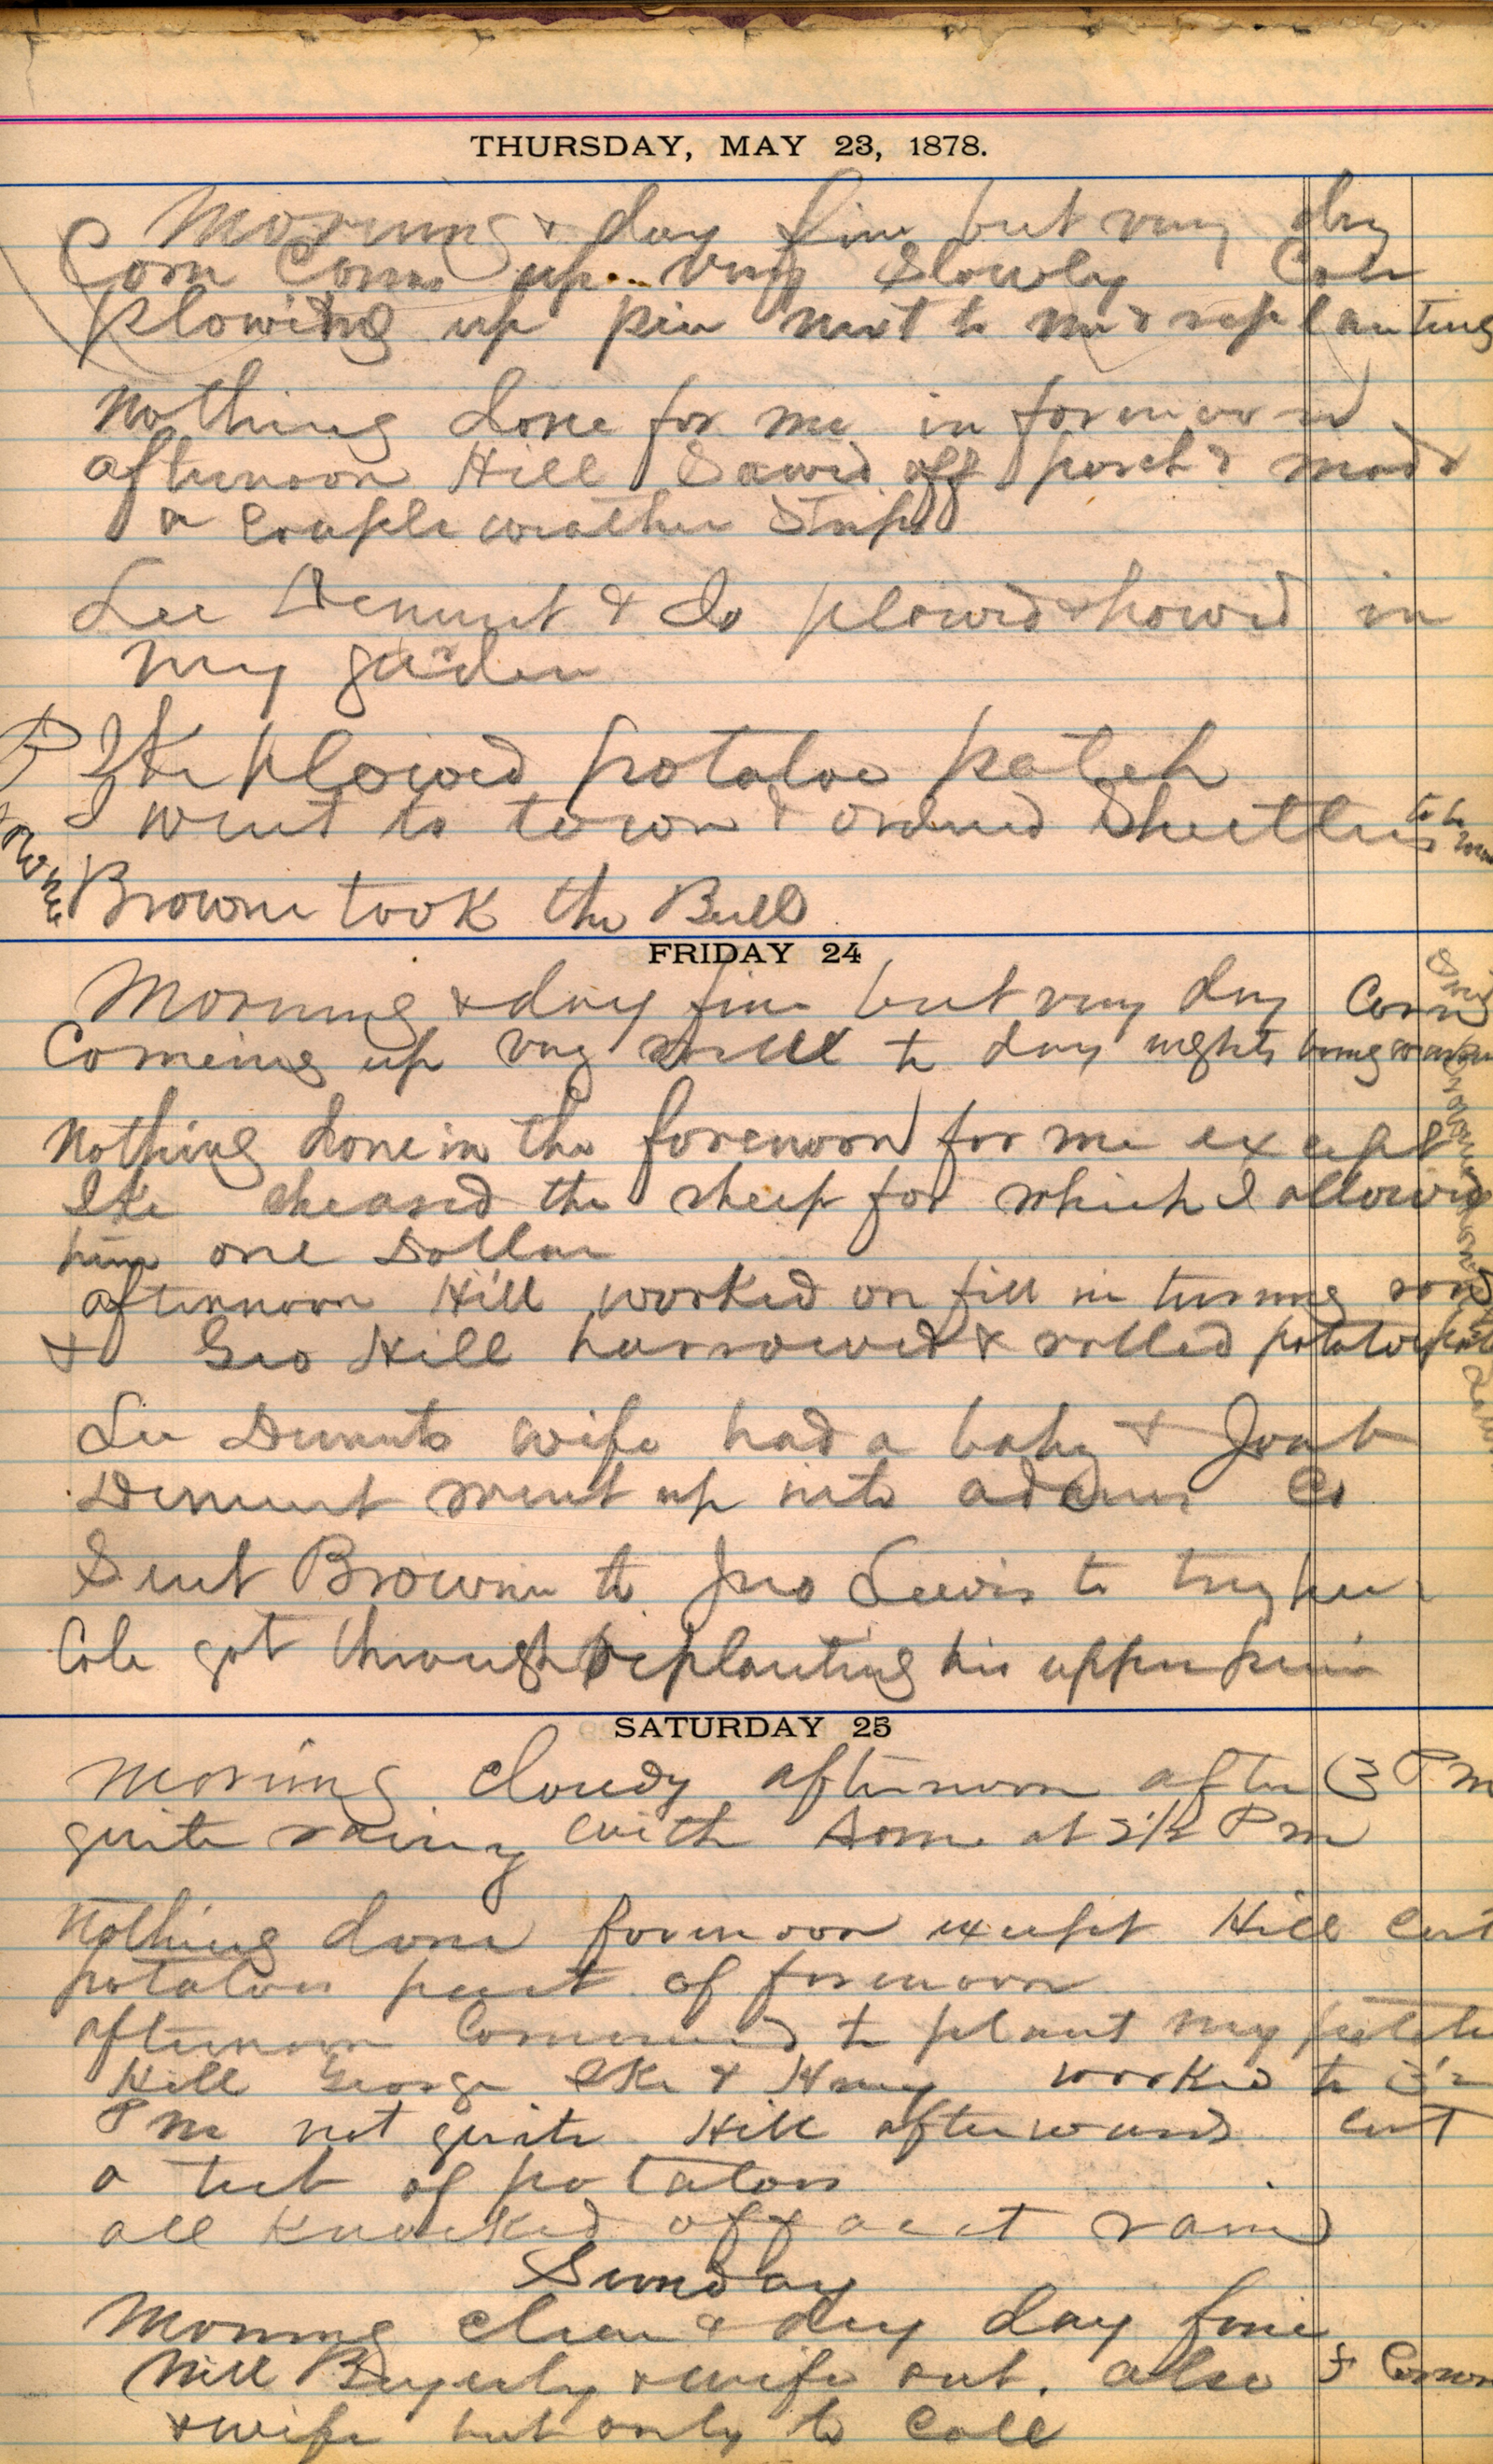 THURSDAY, MAY 23, 1878.
Morning & day fine but very dry
Corn Coms up very Slowly Cole
plowing up piec next to me & replanting
Nothing done for me in forenoon
afternoon Hill Sawed off porch & made
a Couple weather Strips
Lee Dement & Jo plowed & howed in
my garden
Ike plowed potatoe patch
I went to town & ordered Shutters
Brown took the Bull
FRIDAY 24
Morning & day fine but very dry Corn
Comeing up very well to day nights being warm
Nothing done in the forenoon for me except
Ike sheared the sheep for which I allowed
him one Dollar
afternoon Hill worked on fill in turning road
& Geo Hill harrowed & rolled potatoe patch
Lee Dements wife had a baby & Joab
Dement went up into adams Co
Sent Brown to Jno Lewis to try her
Cole got through replanting his upper piece
SATURDAY 25
Morning Cloudy afternoon after 3 P m
quite rainy with Some at 2 1/2 P m
Nothing done forenoon except Hill Cut
potatoes part of forenoon
afternoon Commenced to plant my potatoe
Hill George Ike & Henry worked to 3
P m not quite Hill afterwards Cut
a tub of potatoes
all knocked off acct rain
Sunday
Morning clear & dry day fine
Will Byerly & wife out. also
& wife but only to Call